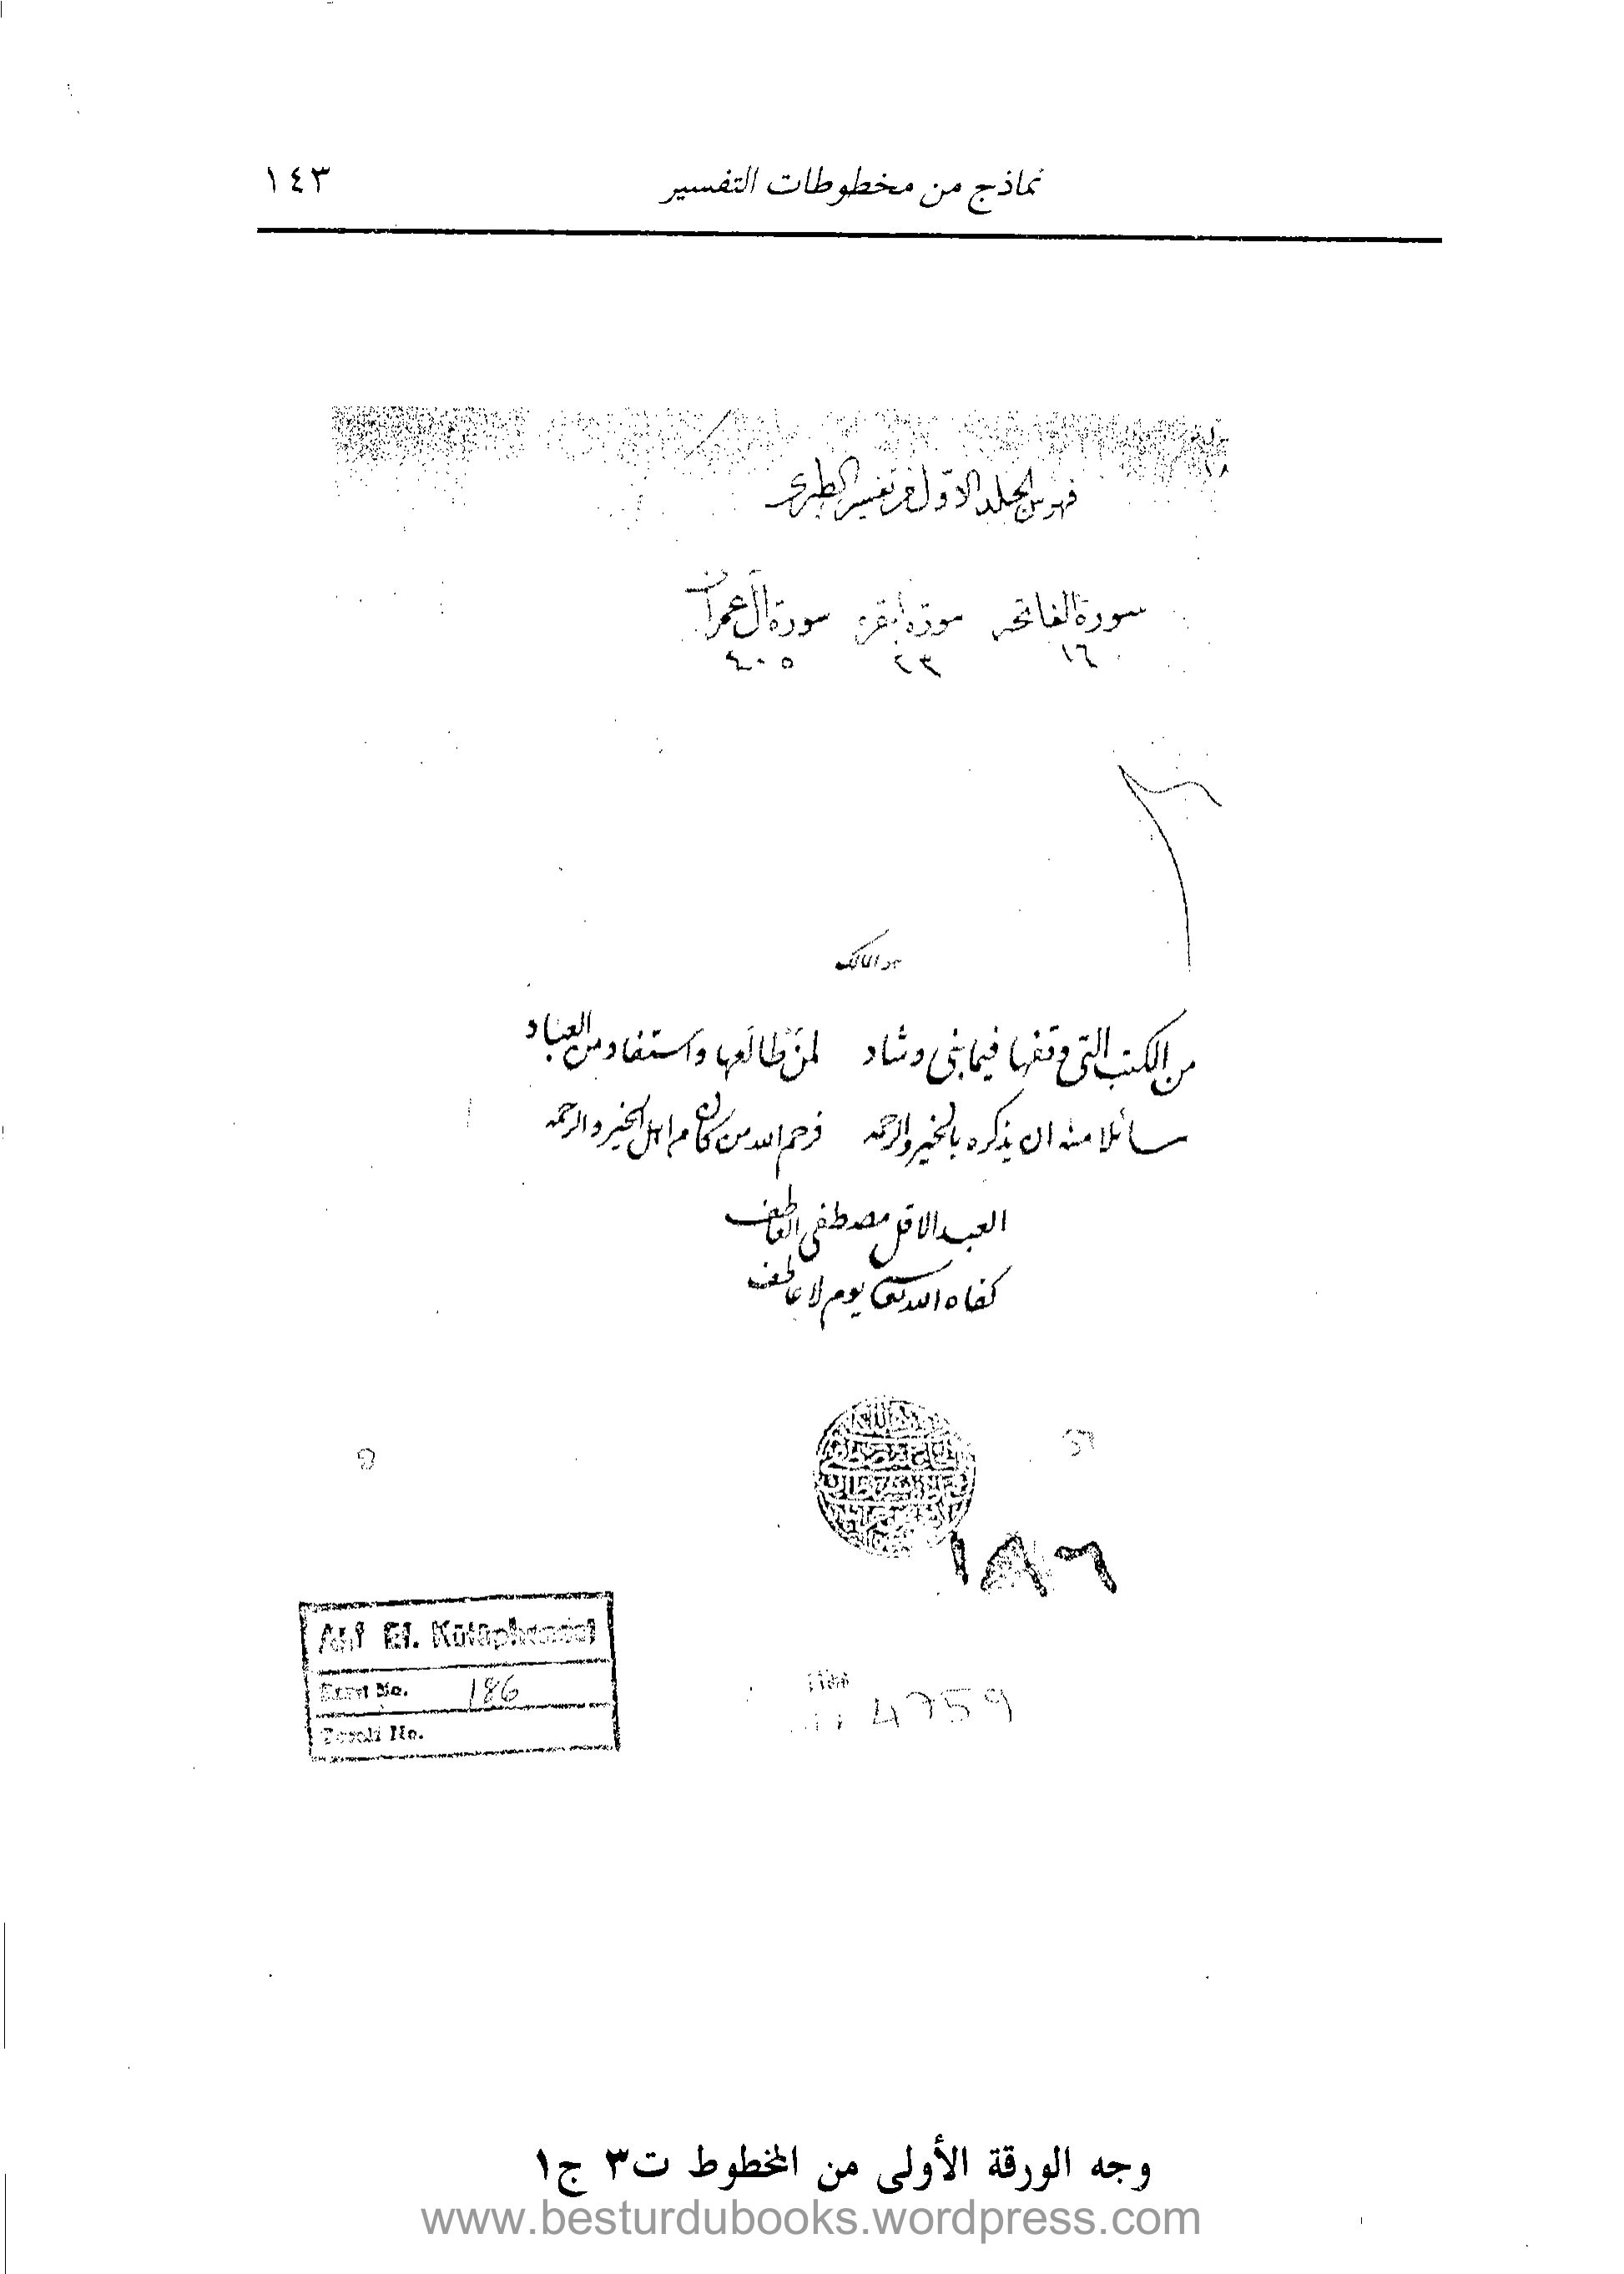 نماذج من مخطوطات التفسير ١٤٣
فهرس الجلد الاول من تفسير الطبرى
سورة الفاتحه سورة البقره سورة آل عمران
١٦ ٢٣ ٤٠٥
هو المالك
من الكتب التى وقفها فيما بنى وشاد لمن طالعها واستفاد من العباد
سائلا منه ان يذكره بالخير والرحمه فرحم الله من كان من اهل الخير والرحمه
العبد الاقل مصطفى العاطف
كفاه الله يوم لا عاطف
١٨٦
Atıf Ef. Kütüphanesi
No. 186
No.
4759
وجه الورقة الأولى من المخطوط ت٣ ج١
www.besturdubooks.wordpress.com